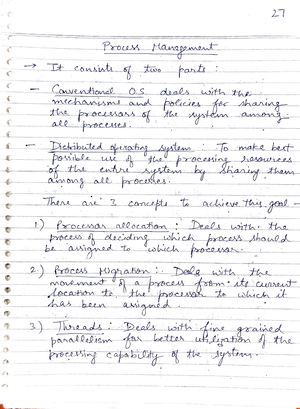 27
Process Management
→ It consists of two parts :
- Conventional O.S. deals with the
mechanisms and policies for sharing
the processors of the system among
all processes.
- Distributed operating system : To make best
possible use of the processing resources
of the entire system by sharing them
among all processes.
There are 3 concepts to achieve this goal -
1) Processor allocation : Deals with the
process of deciding which process should
be assigned to which processor.
2) Process Migration : Deals with the
movement of a process from its current
location to the processor to which it
has been assigned.
3) Threads : Deals with fine grained
parallelism for better utilization of the
processing capability of the system.